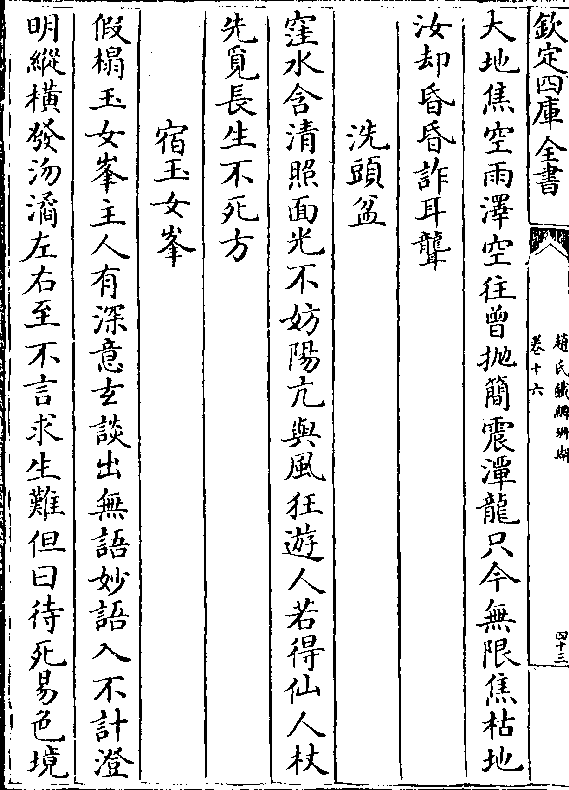 欽定四庫全書
趙氏鐵網珊瑚
卷十六
四十三
大地焦空雨澤空往曾抛簡震潭龍只今無限焦枯地
汝却昏昏詐耳聾
洗頭盆
窪水含清照面光不妨陽亢與風狂遊人若得仙人杖
先覓長生不死方
宿玉女峯
假榻玉女峯主人有深意玄談出無語妙語入不計澄
明縱橫發沕潏左右至不言求生難但曰待死易色境